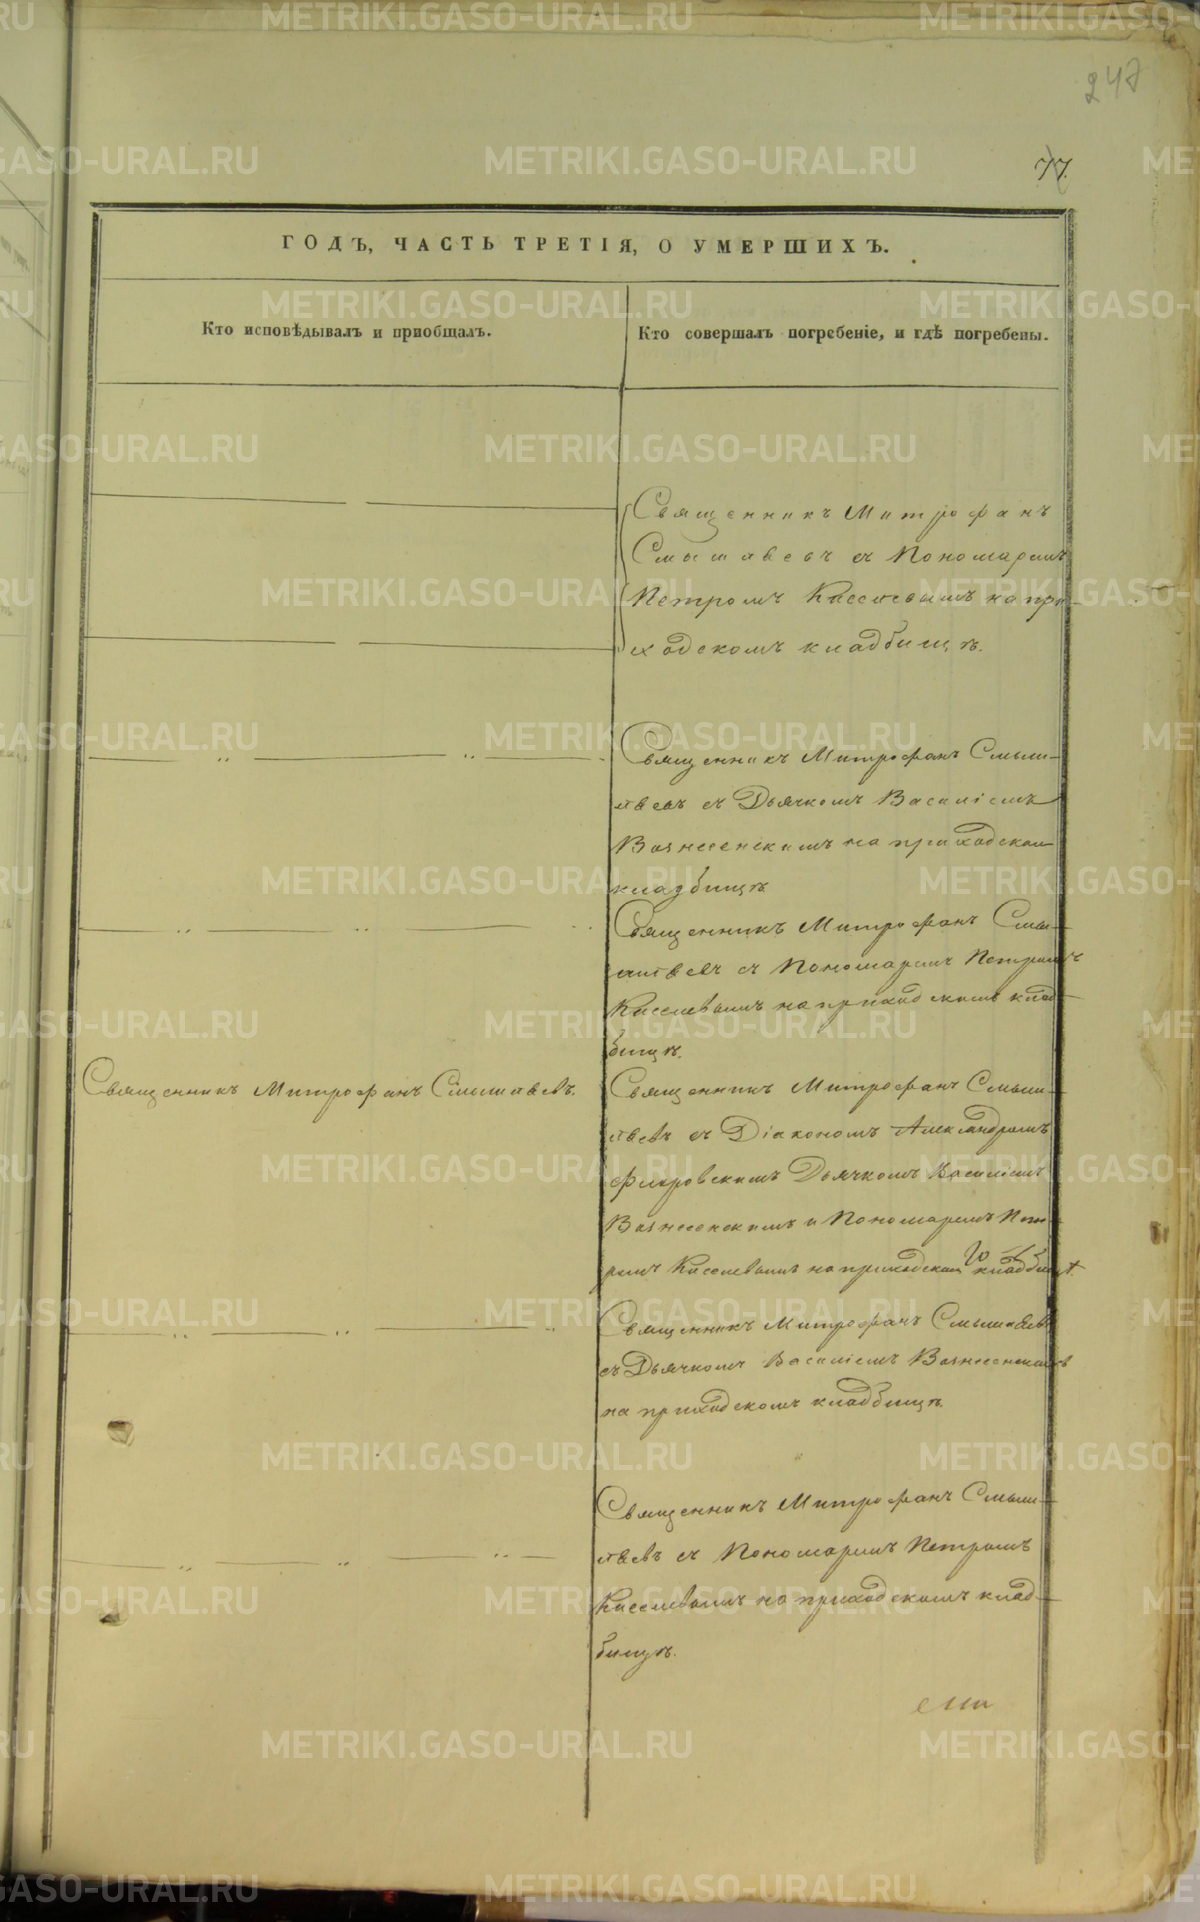 247
77.
ГОДЪ, ЧАСТЬ ТРЕТІЯ, О УМЕРШИХЪ.
Кто исповѣдывалъ и пріобщалъ.
Кто совершалъ погребеніе, и гдѣ погребены.
Священникъ Митрофанъ
Смышляевъ съ Пономаремъ
Петромъ Киселевымъ на при-
ходскомъ кладбищѣ.
Священникъ Митрофанъ Смыш-
ляевъ съ Дьячкомъ Василіемъ
Вознесенскимъ на приходском
кладбищѣ
Священникъ Митрофанъ Смы-
шляевъ съ Пономаремъ Петромъ
Киселевымъ на приходскомъ клад-
бищѣ.
Священникъ Митрофанъ Смышляевъ.
Священникъ Митрофанъ Смыш-
ляевъ съ Діакономъ Александромъ
Флоровскимъ Дьячкомъ Василіемъ
Вознесенскимъ и Пономаремъ Пет-
ромъ Киселевымъ на приходскомъ кладбищѣ.
Священникъ Митрофанъ Смышляевъ
съ Дьячкомъ Василіемъ Вознесенскимъ
на приходскомъ кладбищѣ.
Священникъ Митрофанъ Смыш-
ляевъ съ Пономаремъ Петромъ
Киселевымъ на приходскомъ клад-
бищѣ.
METRIKI.GASO-URAL.RU